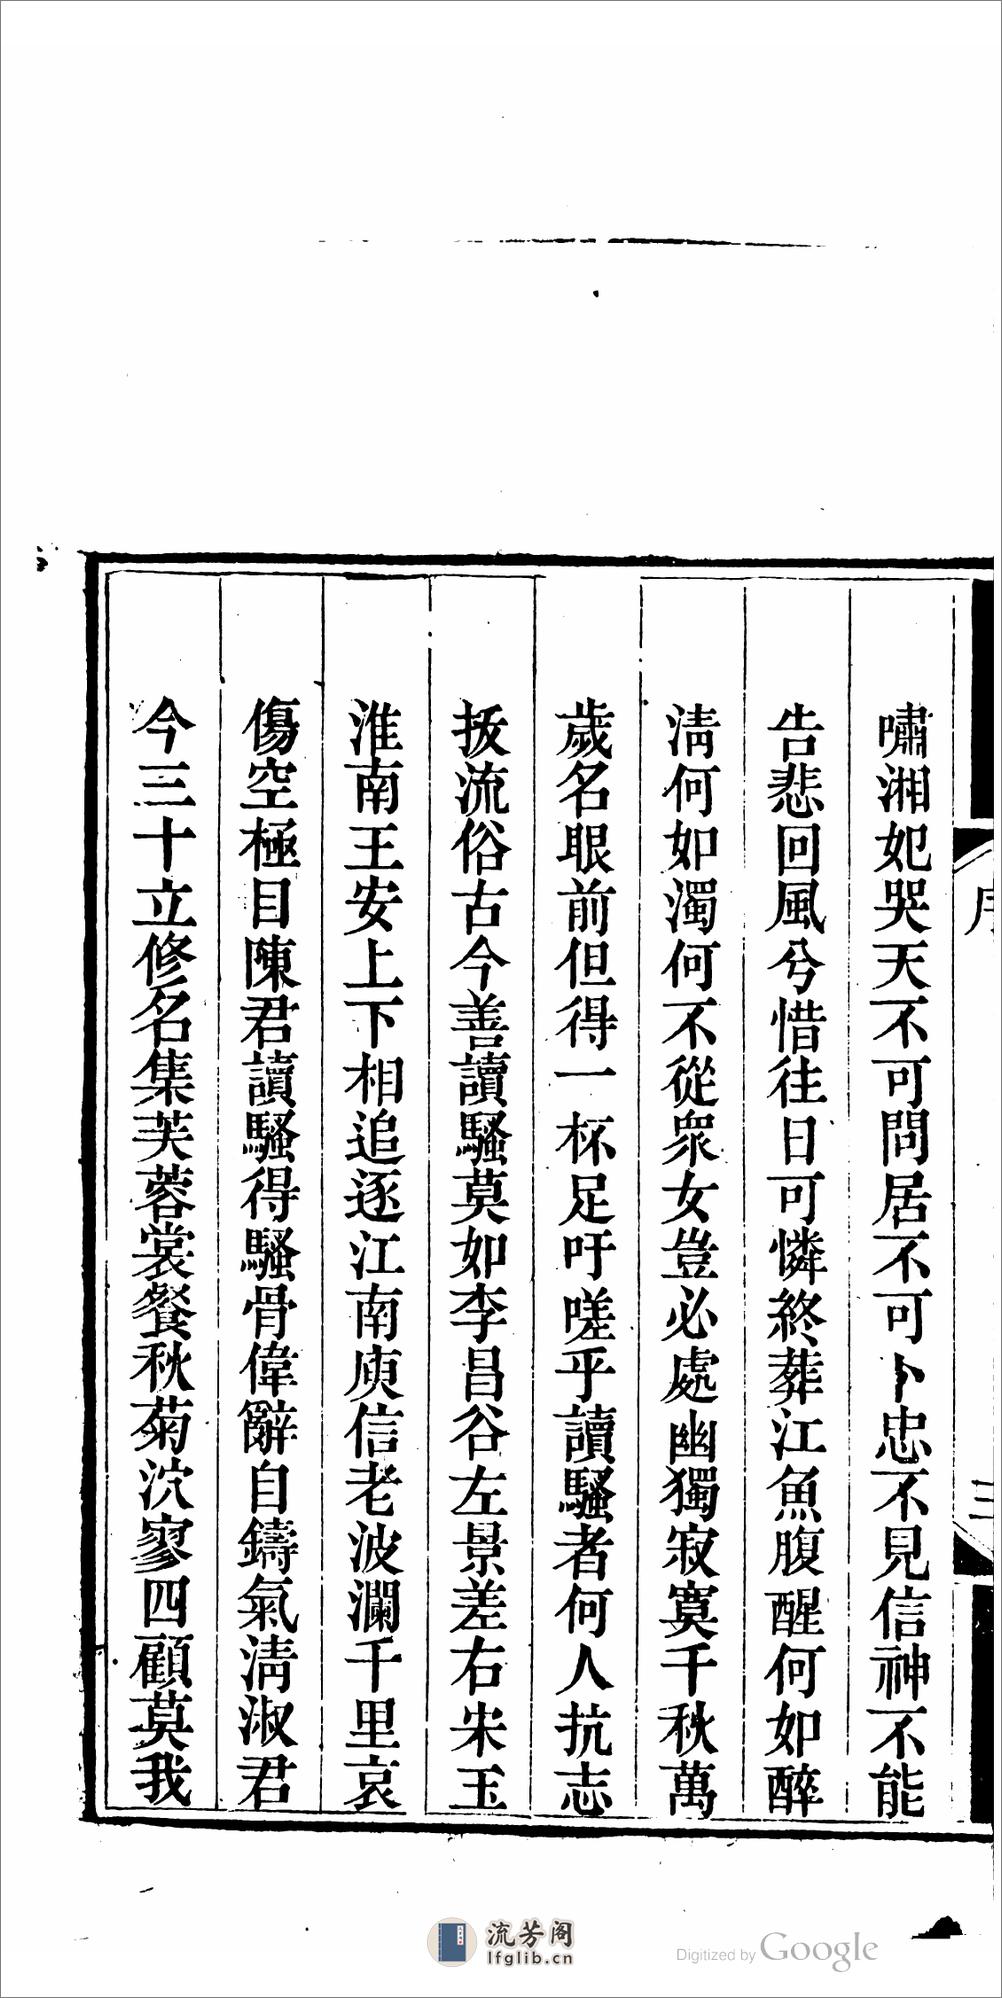 嘯湘妃哭天不可問居不可卜忠不見信神不能
告悲回風兮惜往日可憐終葬江魚腹醒何如醉
淸何如濁何不從衆女豈必處幽獨寂寞千秋萬
歲名眼前但得一杯足吁嗟乎讀騷者何人抗志
拔流俗古今善讀騷莫如李昌谷左景差右宋玉
淮南王安上下相追逐江南庾信老波瀾千里哀
傷空極目陳君讀騷得騷骨偉辭自鑄氣淸淑君
今三十立修名集芙蓉裳餐秋菊泬寥四顧莫我
序
三
流芳阁
lfglib.cn
Digitized by Google